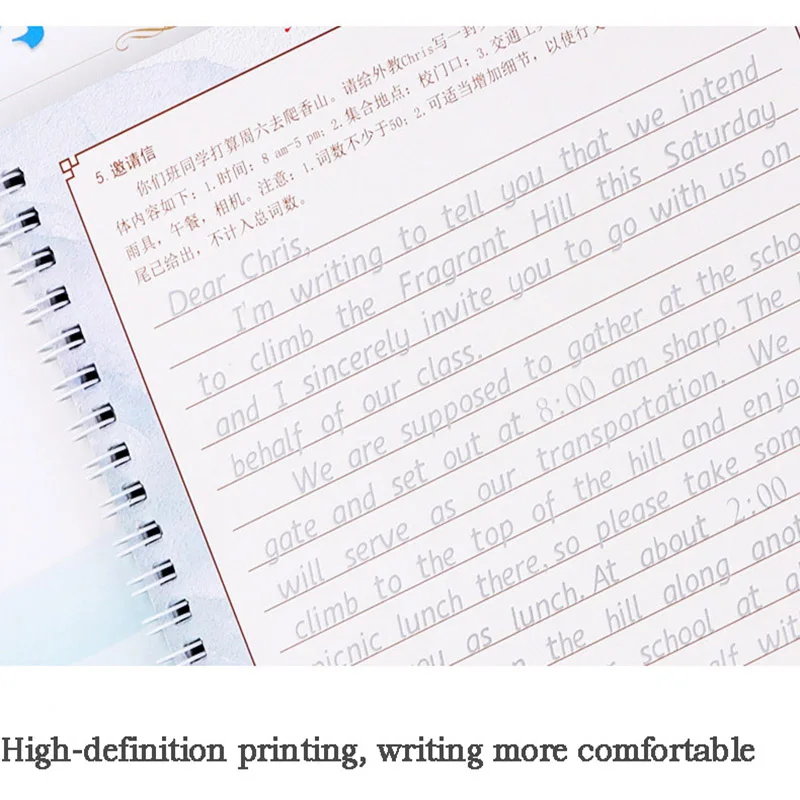 5.邀请信
你们班同学打算周六去爬香山。请给外教Chris写一封
体内容如下：1.时间：8 am-5 pm；2.集合地点：校门口；3.交通工
雨具，午餐，相机。注意：1.词数不少于50；2.可适当增加细节，以使行文
尾已给出，不计入总词数。
Dear Chris,
I'm writing to tell you that we intend
to climb the Fragrant Hill this Saturday
and I sincerely invite you to go with us on
behalf of our class.
We are supposed to gather at the scho
gate and set out at 8:00 am sharp. The
will serve as our transportation. We
climb to the top of the hill and enjo
picnic lunch there, so please take som
you as lunch. At about 2:00
the hill along anot
school at a
elf wit
High-definition printing, writing more comfortable